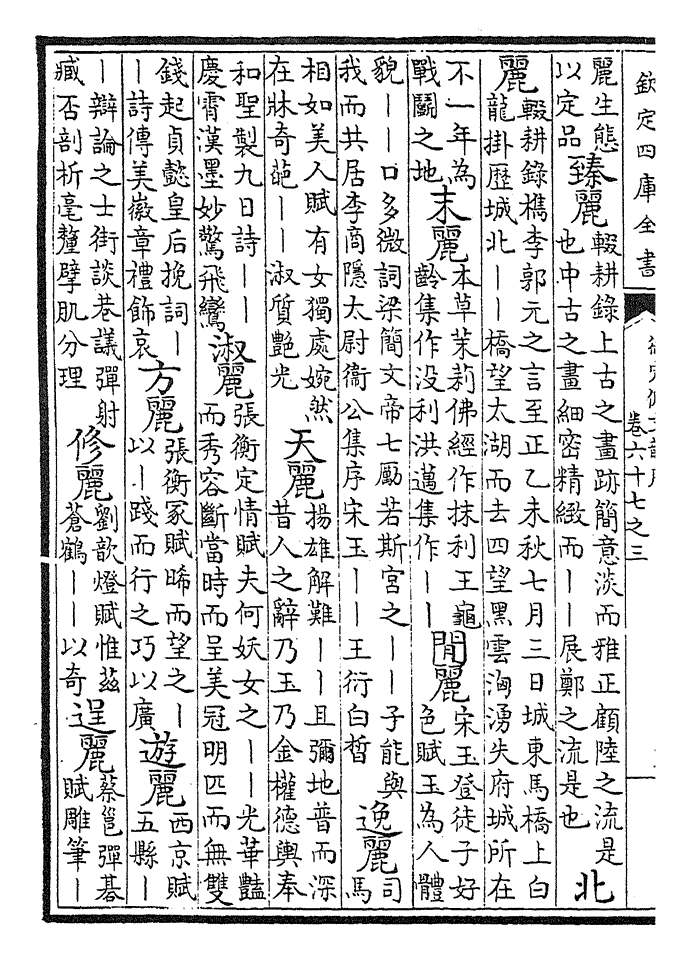 欽定四庫全書
卷六十七之三
麗生態以定品臻麗輟耕錄上古之畫跡簡意淡而雅正顧陸之流是也中古之畫細密精緻而——展鄭之流是也北
麗輟耕錄檇李郭元之言至正乙未秋七月三日城東馬橋上白龍掛歷城北——橋望太湖而去四望黑雲洶湧失府城所在
不一年為戰鬭之地末麗本草茉莉佛經作抹利王龜齡集作没利洪邁集作——閒麗宋玉登徒子好色賦玉為人體
貌——口多微詞梁簡文帝七勵若斯宮之——子能與我而共居李商隱太尉衞公集序宋玉——王衍白晳逸麗司馬
相如美人賦有女獨處婉然在牀奇葩——淑質艷光天麗揚雄解難——且彌地普而深昔人之辭乃玉乃金權德輿奉
和聖製九日詩——慶霄漢墨妙驚飛鸞淑麗張衡定情賦夫何妖女之——光華豔而秀容斷當時而呈美冠明匹而無雙
錢起貞懿皇后挽詞——詩傳美徽章禮飾哀方麗張衡冢賦晞而望之—以—踐而行之巧以廣遊麗西京賦五縣—
—辯論之士街談巷議彈射臧否剖析毫釐擘肌分理修麗劉歆燈賦惟茲蒼鶴——以奇逞麗蔡邕彈碁賦雕筆—